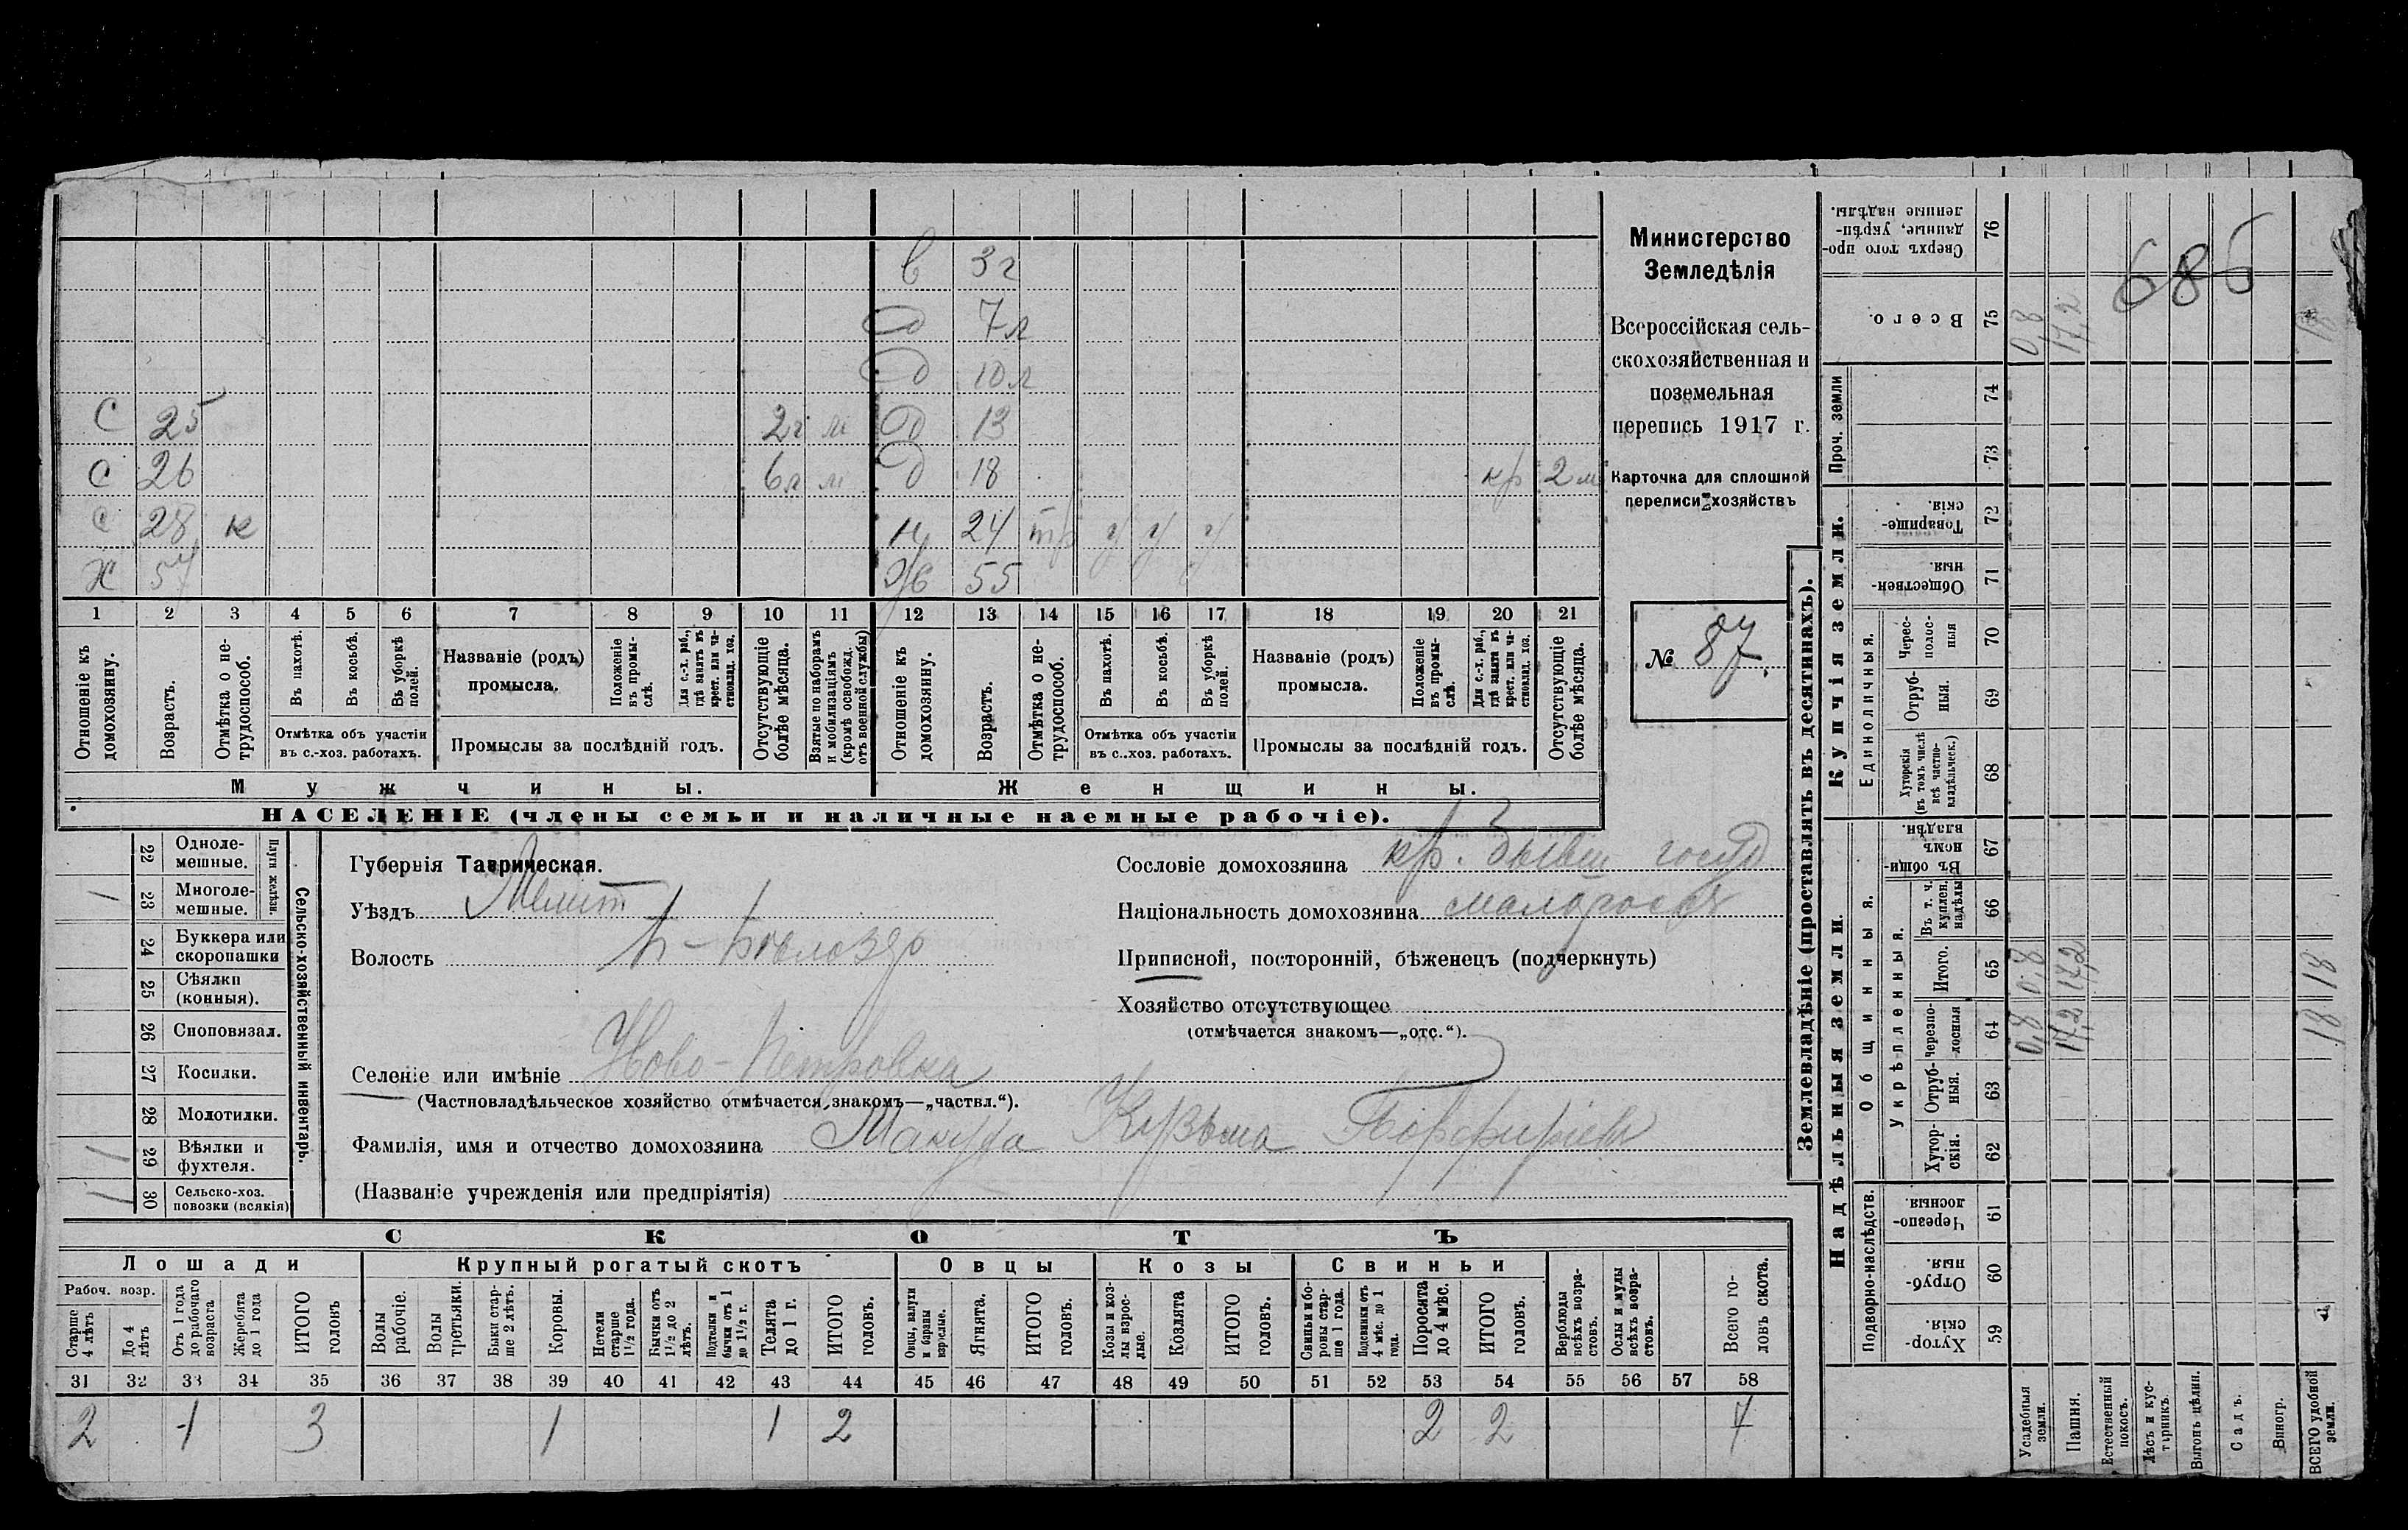 в 3г
д 7л
д 10л
С 25 2г м д 13
С 26 6л м д 18 кр 2м
с 28 к н 24 тр у у у
Х 57 Ж 55
1 2 3 4 5 6 7 8 9 10 11 12 13 14 15 16 17 18 19 20 21
Отношеніе къ домохозяину.
Возрастъ.
Отмѣтка о не-трудоспособ.
Въ пахотѣ.
Въ косьбѣ.
Въ уборкѣ полей.
Отмѣтка объ участіи
въ с.-хоз. работахъ.
Названіе (родъ)
промысла.
Положеніе въ промы-слѣ.
Для с.-х. раб., гдѣ занятъ въ крест. или ча-стновлад. хоз.
Промыслы за послѣдній годъ.
Отсутствующіе болѣе мѣсяца.
Взятые по наборамъ и мобилизаціямъ (кромѣ освобожд. отъ военной службы)
Отношеніе къ домохозяину.
Возрастъ.
Отмѣтка о не-трудоспособ.
Въ пахотѣ.
Въ косьбѣ.
Въ уборкѣ полей.
Отмѣтка объ участіи
въ с..хоз. работахъ.
Названіе (родъ)
промысла.
Положеніе въ промы-слѣ.
Для с.-х. раб., гдѣ занята въ крест. или ча-стновлад. хоз.
Промыслы за послѣдній годъ.
Отсутствующіе болѣе мѣсяца.
Мужчины.
Женщины.
НАСЕЛЕНІЕ (члены семьи и наличные наемные рабочіе).
Министерство
Земледѣлія
Всероссійская сель-
скохозяйственная и
поземельная
перепись 1917 г.
Карточка для сплошной
переписи хозяйствъ
№ 87.
22 Одноле-мешные.
23 Многоле-мешные. 1
Плуги желѣзн.
24 Буккера или скоропашки
25 Сѣялки (конныя).
26 Сноповязал.
27 Косилки.
28 Молотилки.
29 Вѣялки и фухтеля. 1
30 Сельско-хоз. повозки (всякія)
Сельско-хозяйственный инвентарь.
Губернія Таврическая.
Уѣздъ Мелит
Волость
Селеніе или имѣніе Ново-Петровка
(Частновладѣльческое хозяйство отмѣчается знакомъ—„частвл.“).
Фамилія, имя и отчество домохозяина Кузьма Порфирiев
(Названіе учрежденія или предпріятія)
Сословіе домохозяина кр. бывш госуд
Національность домохозяина малоросъ
Приписной, посторонній, бѣженецъ (подчеркнуть)
Хозяйство отсутствующее
(отмѣчается знакомъ—„отс.“).
СКОТЪ
Лошади
Крупный рогатый скотъ
Овцы
Козы
Свиньи
Рабоч. возр.
Старше 4 лѣтъ
До 4 лѣтъ
Отъ 1 года до рабочаго возраста
Жеребята до 1 года
ИТОГО головъ
Волы рабочіе.
Волы третьяки.
Быки стар-ше 2 лѣтъ.
Коровы.
Нетели старше 1½ года.
Бычки отъ 1½ до 2 лѣтъ.
Подтелки и бычки отъ 1 до 1½ г.
Телята до 1 г.
ИТОГО головъ.
Овцы, валухи и бараны взрослые.
Ягнята.
ИТОГО головъ.
Козы и коз-лы взрос-лые.
Козлята
ИТОГО головъ.
Свиньи и бо-ровы стар-ше 1 года.
Подсвинки отъ 4 мѣс. до 1 года.
Поросята до 4 мѣс.
ИТОГО головъ.
Верблюды всѣхъ возра-стовъ.
Ослы и мулы всѣхъ возра-стовъ.
Всего го-ловъ скота.
31 32 33 34 35 36 37 38 39 40 41 42 43 44 45 46 47 48 49 50 51 52 53 54 55 56 57 58
2 1 3 1 1 2 2 2 7
Землевладѣніе (проставлять въ десятинахъ).
Надѣльныя земли.
Купчія земли.
Проч. земли
Подворно-наслѣдств.
Общинныя.
Укрѣпленныя.
Единоличныя.
59 Хутор-скія.
60 Отруб-ныя.
61 Черезпо-лосныя
62 Хутор-скія.
63 Отруб-ныя.
64 Черезпо-лосныя 0,8 17,2 18
65 Итого. 0,8 17,2 18
66 Въ т. ч. куплен. надѣлы
67 Въ общи-номъ владѣн.
68 Хуторскія (въ томъ числѣ всѣ частно-владѣльческ.)
69 Отруб-ныя.
70 Черес-полос-ныя
71 Обществен-ныя.
72 Товарище-скія.
73
74
75 Всего. 0,8 17,2 18
76 Сверхъ того про-данные, укрѣп-ленные надѣлы.
686
Усадебныя земли.
Пашня.
Естественный покосъ.
Лѣсъ и кус-тарникъ.
Выгонъ цѣлин.
Садъ.
Виногр.
ВСЕГО удобной земли.